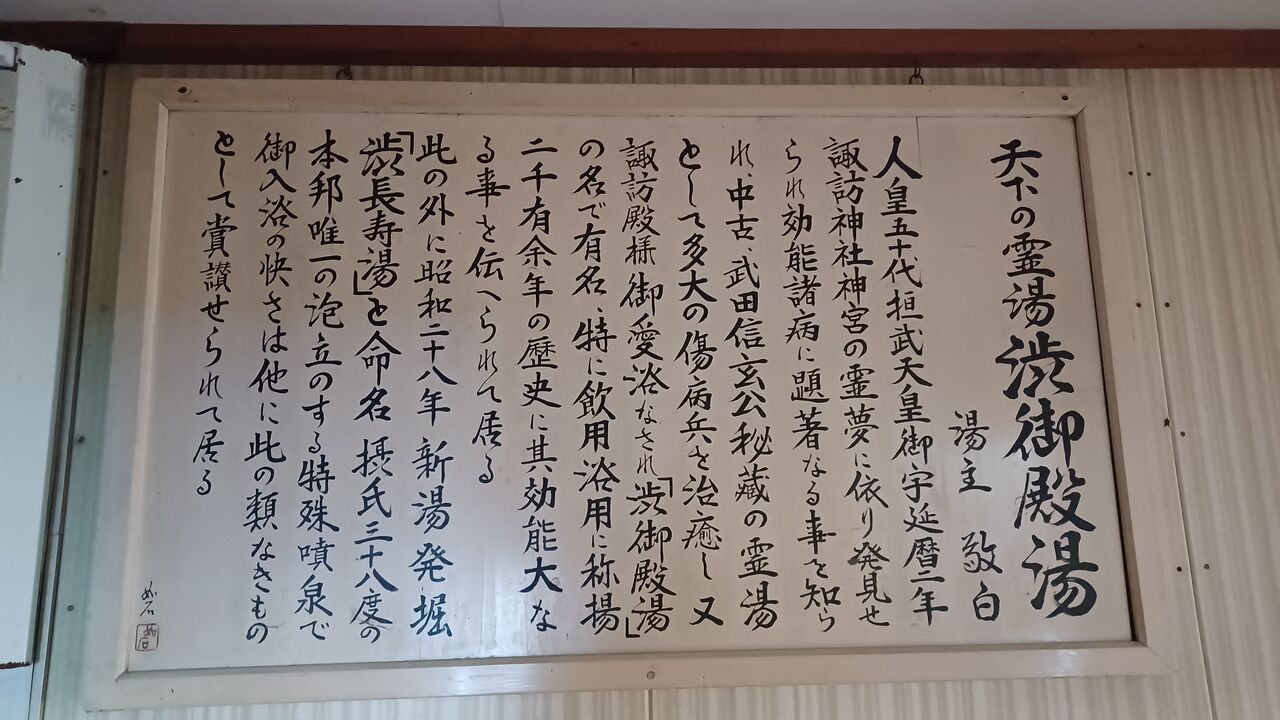 天下の霊湯渋御殿湯
湯主 敬白
人皇五十代桓武天皇御宇延暦二年
諏訪神社神宮の霊夢に依り発見せ
られ効能諸病に顕著なる事を知ら
れ、中古、武田信玄公秘蔵の霊湯
として多大の傷病兵を治癒し又
諏訪殿様御愛浴なされ「渋御殿湯」
の名で有名、特に飲用浴用に称揚
二千有余年の歴史に其効能大な
る事を伝へられて居る
此の外に昭和二十八年新湯発堀
「渋長寿湯」と命名摂氏三十八度の
本邦唯一の泡立のする特殊噴泉で
御入浴の快さは他に此の類なきもの
として賞讃せられて居る